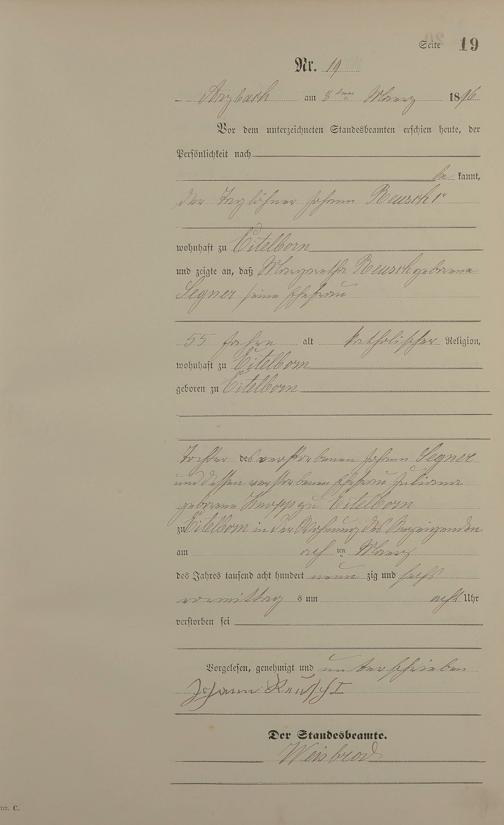 Seite 19
Nr. 19
Arzbach am 8ten März 1896
Vor dem unterzeichneten Standesbeamten erschien heute, der
Persönlichkeit nach
be kannt,
der Taglöhner Johann Reusch Ir
wohnhaft zu Eitelborn
und zeigte an, daß Margaretha Reusch geborene
Segner seine Ehefrau
55 Jahre alt katholischer Religion,
wohnhaft zu Eitelborn
geboren zu Eitelborn
Tochter des verstorbenen Johann Segner
und dessen verstorbenen Ehefrau Juliana
geborene Knopp zu Eitelborn
zu Eitelborn in der Wohnung des Anzeigenden
am acht en März
des Jahres tausend acht hundert neun zig und sechs
vormittag s um acht Uhr
verstorben sei
Vorgelesen, genehmigt und unterschrieben
Johann Reusch I
Der Standesbeamte.
Weisbrod
C.